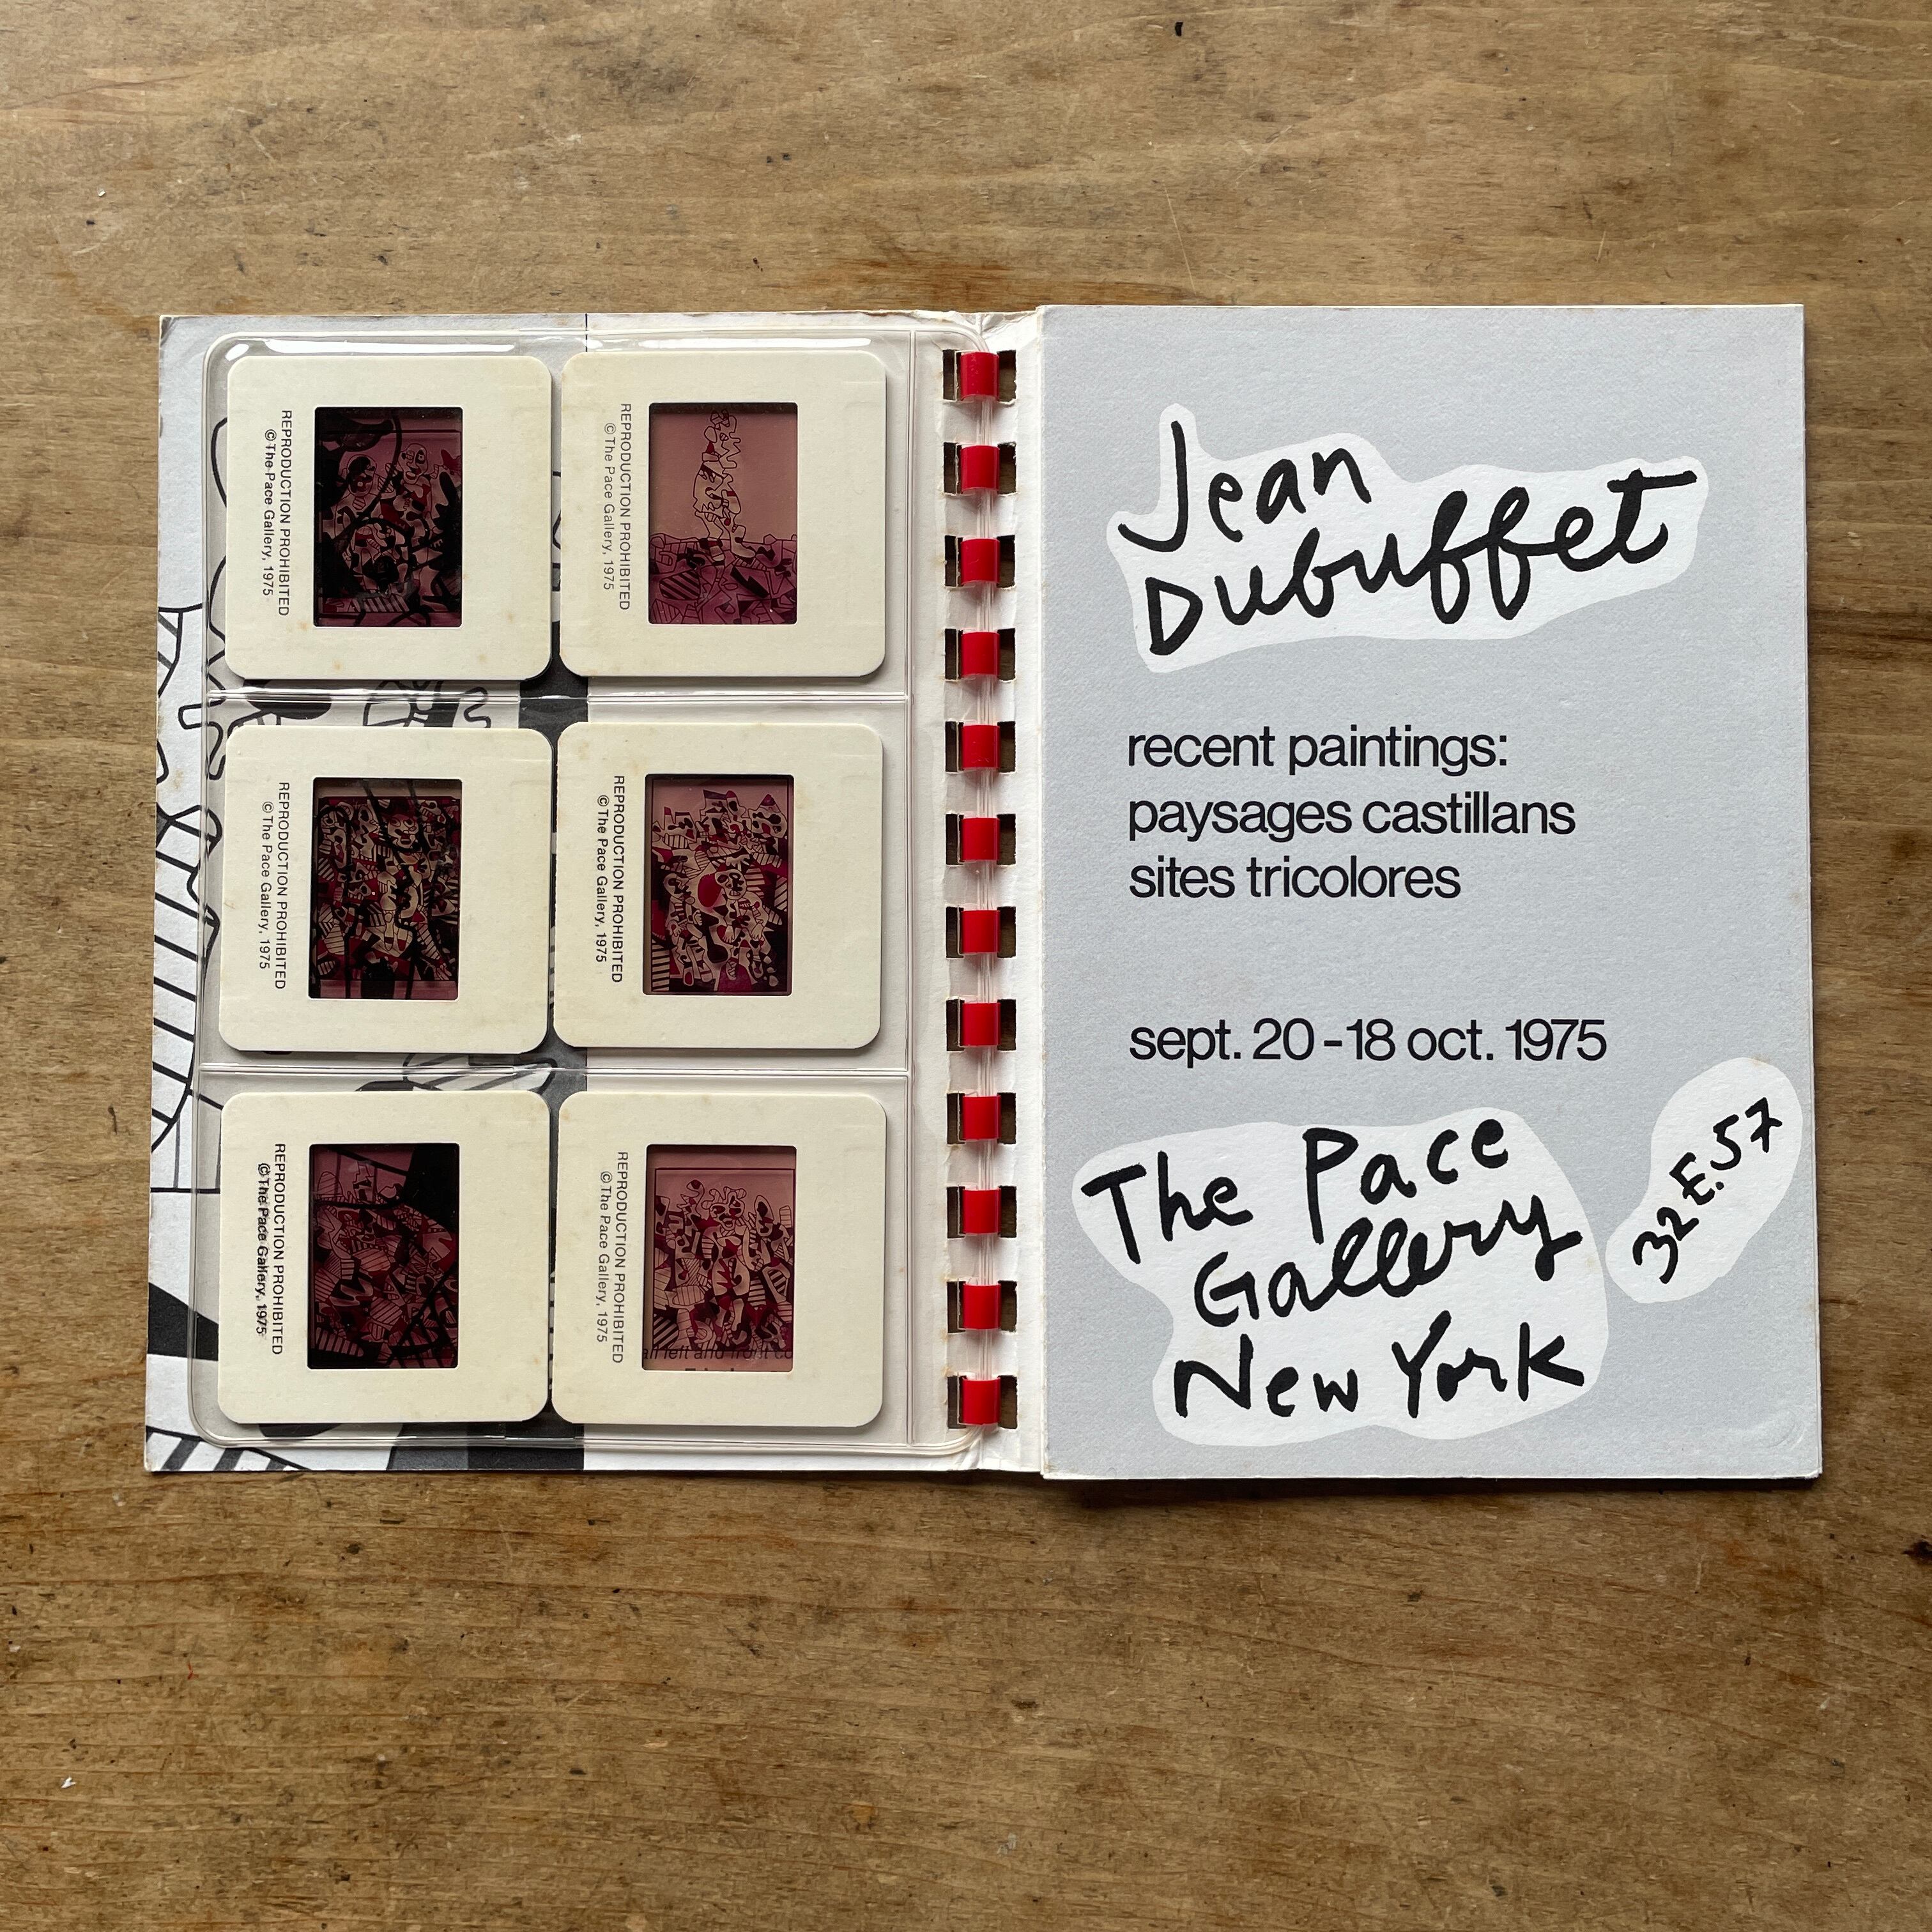 REPRODUCTION PROHIBITED
©The Pace Gallery, 1975
REPRODUCTION PROHIBITED
©The Pace Gallery, 1975
REPRODUCTION PROHIBITED
©The Pace Gallery, 1975
REPRODUCTION PROHIBITED
©The Pace Gallery, 1975
REPRODUCTION PROHIBITED
©The Pace Gallery, 1975
REPRODUCTION PROHIBITED
©The Pace Gallery, 1975
left and front
Jean
Dubuffet
recent paintings:
paysages castillans
sites tricolores
sept. 20-18 oct. 1975
The Pace
Gallery
New York
32 E. 57